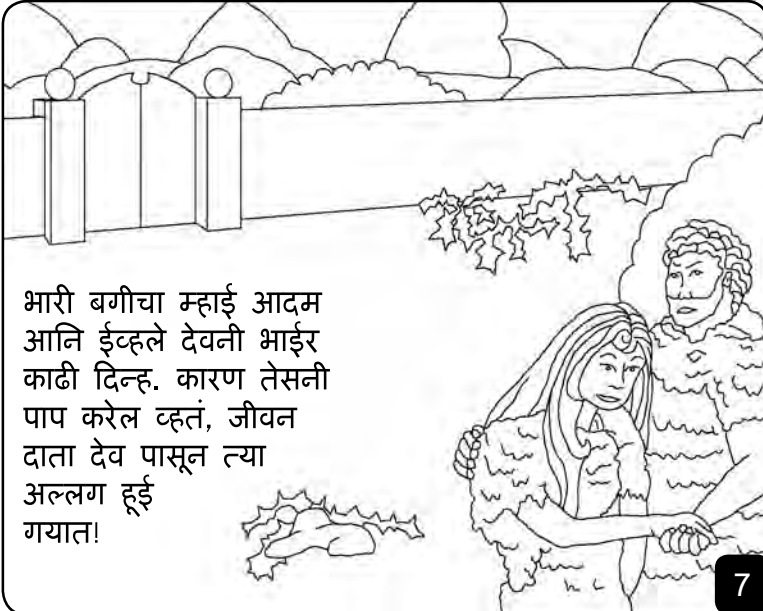 भारी बगीचा म्हाई आदम
आनि ईव्हले देवनी भाईर
काढी दिन्ह. कारण तेसनी
पाप करेल व्हतं, जीवन
दाता देव पासून त्या
अल्लग हूई
गयात!
7